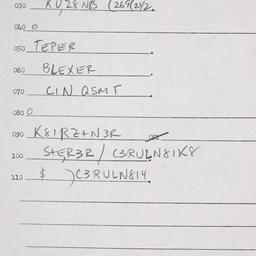 030 KUZENB (269(242.
040 0
050 TEPER .
060 BLEXER .
070 CIN QSMT .
080 0
090 K8IRZ+N3R
100 SteR3R/ C3RULN8IK8
110 $ )C3RULN814.